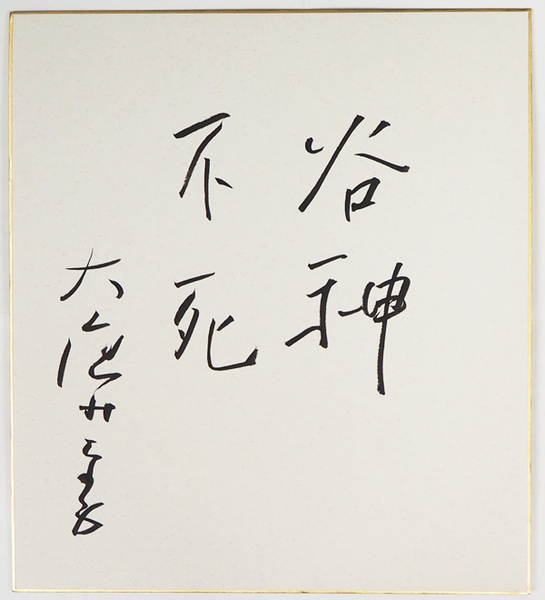 谷神
不死
大庭